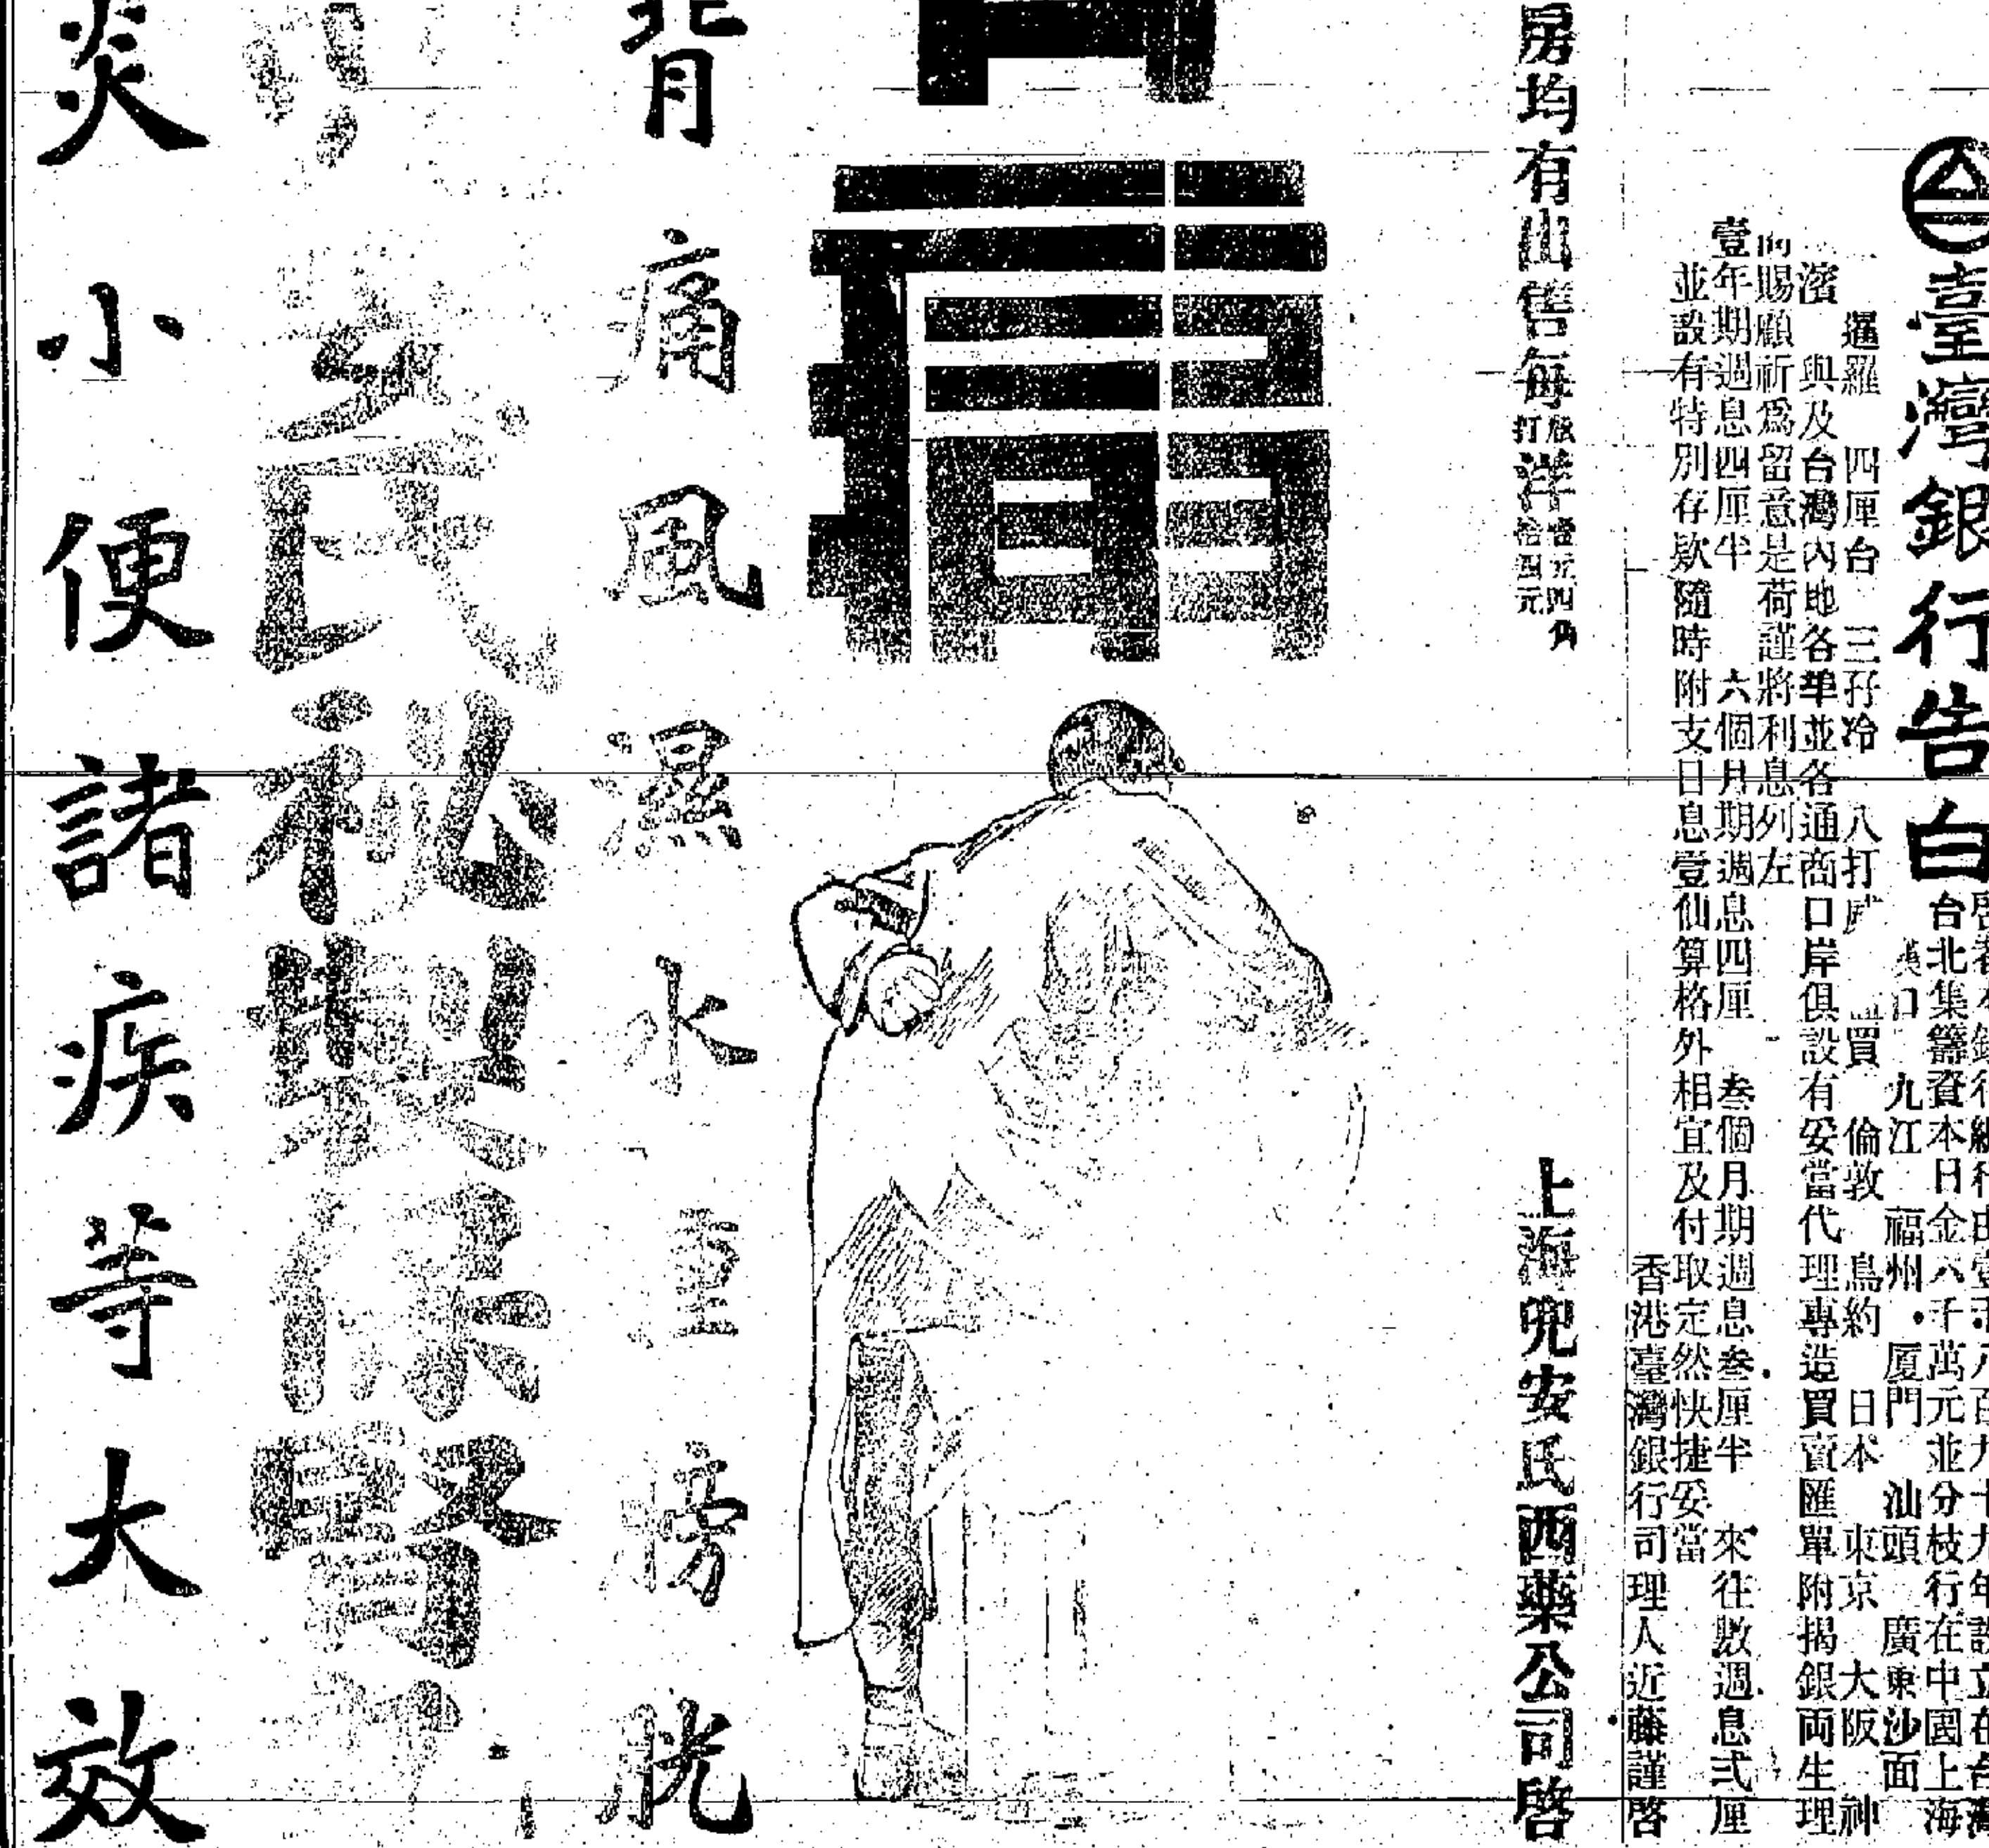 臺灣銀行告白
台北集籌資本日金六千萬元並分枝行在中國上海
漢口 九江 福州 厦門 汕頭 廣東沙面
暹羅 四厘台 三孖冷 八打威 買 倫敦 鳥約 日本 東京 大阪 神
濱 與及台灣內地各埠並各通商口岸俱設有妥當代理專造買賣匯單附揭銀両生理
賜顧祈爲留意是荷謹將利息列左
壹年期週息四厘半 六個月期週息四厘 叁個月期週息叁厘半 來往數週息弍厘
並設有特別存欵隨時附支日息壹仙算格外相宜及付取定然快捷妥當
香港臺灣銀行司理人近藤謹啓
房均有出售每瓶打洋壹元四角拾四元
上海兜安氏西藥公司啓
背痛風濕水重膀胱
兜安氏秘製保腎
炎小便諸疾等大效